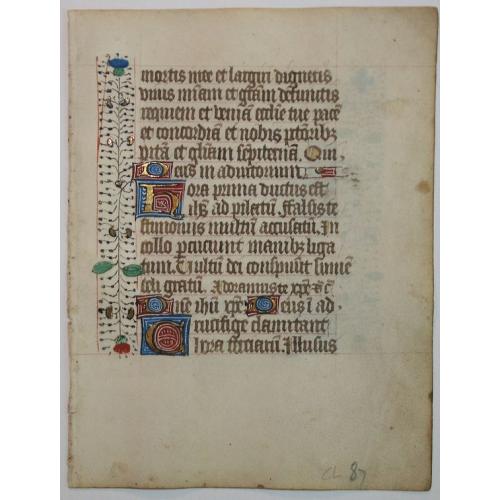 mortis mee et largiri digneris
vivis miam et gram defunctis
requiem et veniam ecclie tue pace
et concordia et nobis pctoribz
vita et gliam sepiternã. Qui.
Deus in adiutorium
Hora prima ductus est
ihs ad pilatum ffalsis te
stimoniis multum accusatũ. In
collo percuciunt manibz liga
tum. Vultũ dei conspuũt lumẽ
celi gratum. Adoramus te xpe. &c
Dne ihũ xpe Deus i ad
Crucifige clamitant
hora terciarũ. Illusus
CL 87